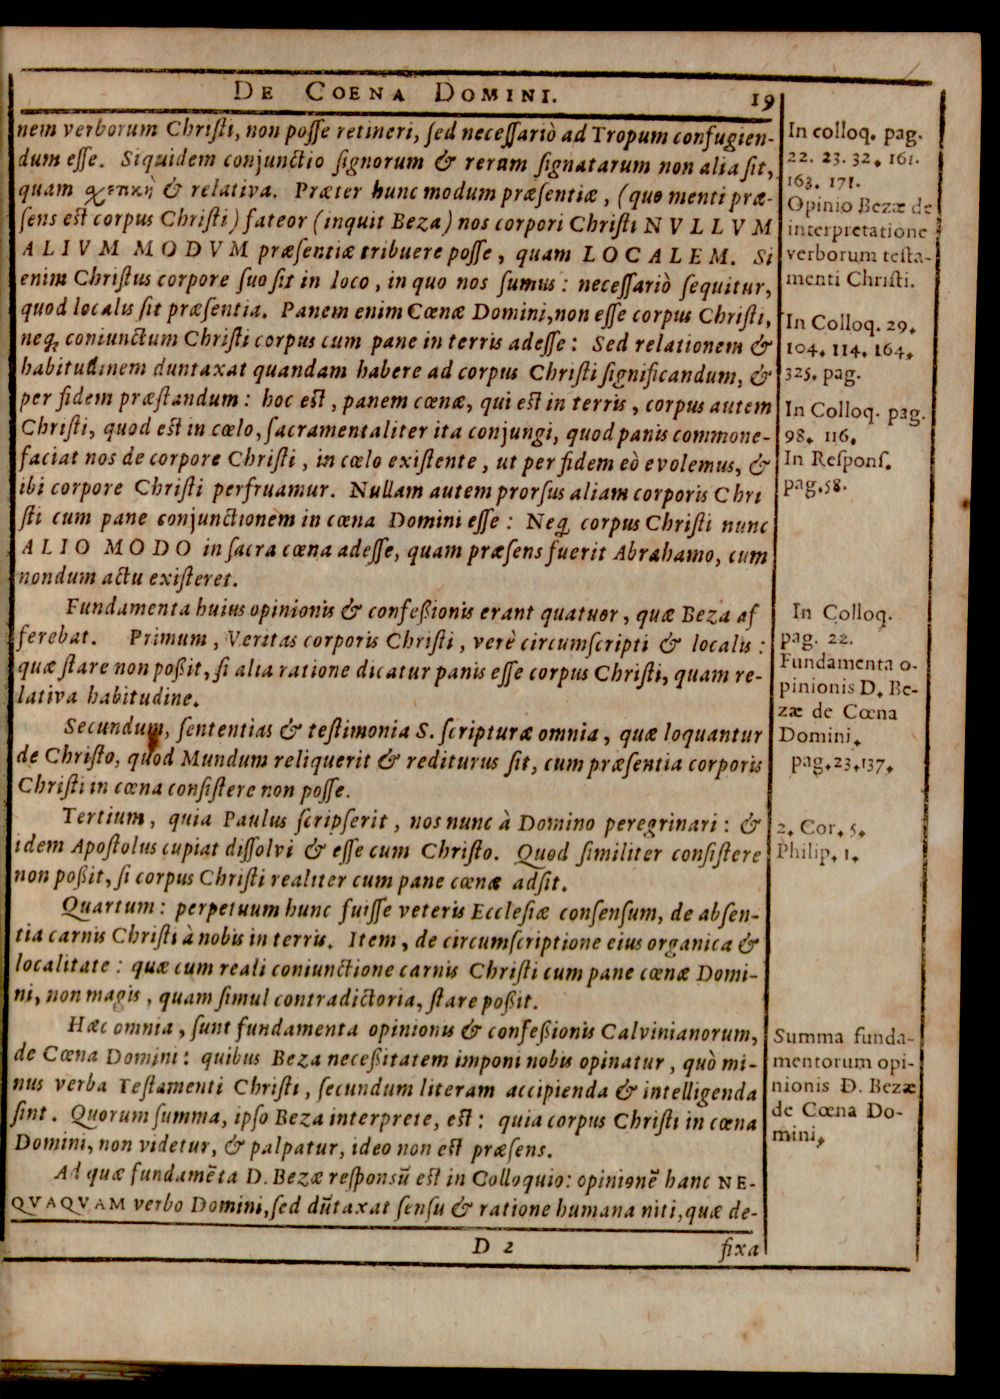 DE COENA DOMINI. 19
nem verborum Chriſti, non poſſe retineri, ſed neceſſariò ad Tropum confugien-
dum eſſe. Siquidem conjunctio ſignorum & rerum ſignatarum non alia ſit,
quam σχετικὴ & relativa. Præter hunc modum præſentiæ, (quo menti præ-
ſens eſt corpus Chriſti) fateor (inquit Beza) nos corpori Chriſti NVLLVM
ALIVM MODVM præſentiæ tribuere poſſe, quam LOCALEM. Si
enim Chriſtus corpore ſuo ſit in loco, in quo nos ſumus: neceſſariò ſequitur,
quod localis ſit præſentia. Panem enim Cœnæ Domini, non eſſe corpus Chriſti,
neq; coniunctum Chriſti corpus cum pane in terris adeſſe: Sed relationem &
habitudinem duntaxat quandam habere ad corpus Chriſti ſignificandum, &
per fidem præſtandum: hoc eſt, panem cœnæ, qui eſt in terris, corpus autem
Chriſti, quod eſt in cœlo, ſacramentaliter ita conjungi, quod panis commone-
faciat nos de corpore Chriſti, in cœlo exiſtente, ut per fidem eò evolemus, &
ibi corpore Chriſti perfruamur. Nullam autem prorſus aliam corporis Chri
ſti cum pane conjunctionem in cœna Domini eſſe: Neq; corpus Chriſti nunc
ALIO MODO in ſacra cœna adeſſe, quam præſens fuerit Abrahamo, cum
nondum actu exiſteret.
Fundamenta huius opinionis & confeßionis erant quatuor, quæ Beza af
ferebat. Primum, Veritas corporis Chriſti, verè circumſcripti & localis:
quæ ſtare non poßit, ſi alia ratione dicatur panis eſſe corpus Chriſti, quam re-
lativa habitudine.
Secundum, ſententias & teſtimonia S. ſcripturæ omnia, quæ loquantur
de Chriſto, quod Mundum reliquerit & rediturus ſit, cum præſentia corporis
Chriſti in cœna conſiſtere non poſſe.
Tertium, quia Paulus ſcripſerit, nos nunc à Domino peregrinari: &
idem Apoſtolus cupiat diſſolvi & eſſe cum Chriſto. Quod ſimiliter conſiſtere
non poßit, ſi corpus Chriſti realiter cum pane cœnæ adſit.
Quartum: perpetuum hunc fuiſſe veteris Eccleſiæ conſenſum, de abſen-
tia carnis Chriſti à nobis in terris. Item, de circumſcriptione eius organica &
localitate: quæ cum reali coniunctione carnis Chriſti cum pane cœnæ Domi-
ni, non magis, quam ſimul contradictoria, ſtare poßit.
Hæc omnia, ſunt fundamenta opinionis & confeßionis Calvinianorum,
de Cœna Domini: quibus Beza neceßitatem imponi nobis opinatur, quò mi-
nus verba Teſtamenti Chriſti, ſecundum literam accipienda & intelligenda
ſint. Quorum ſumma, ipſo Beza interprete, eſt: quia corpus Chriſti in cœna
Domini, non videtur, & palpatur, ideo non eſt præſens.
Ad quæ fundamẽta D. Bezæ reſponsũ eſt in Colloquio: opinionẽ hanc NE-
QVAQVAM verbo Domini, ſed dũtaxat ſenſu & ratione humana niti, quæ de-
D 2 fixa
In colloq. pag.
22. 23. 32. 161.
163. 171.
Opinio Bezæ de
interpretatione
verborum teſta-
menti Chriſti.
In Colloq. 29.
104. 114. 164.
325. pag.
In Colloq. pag.
98. 116.
In Reſponſ.
pag. 58.
In Colloq.
pag. 22.
Fundamenta o-
pinionis D. Be-
zæ de Cœna
Domini.
pag. 23. 137.
2. Cor. 5.
Philip. 1.
Summa funda-
mentorum opi-
nionis D. Bezæ
de Cœna Do-
mini.